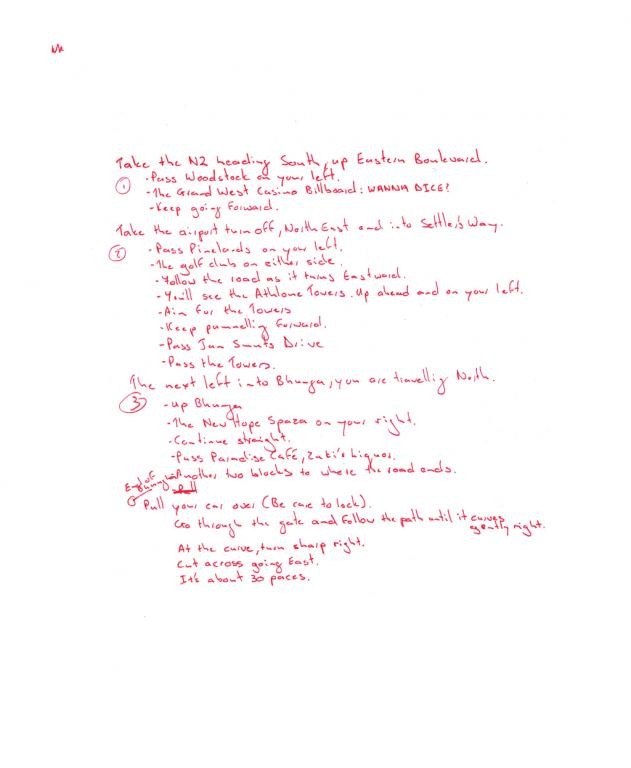 Take the N2 heading South, up Eastern Boulevard.
① -Pass Woodstock on your left.
-The Grand West Casino Billboard: WANNA DICE?
-Keep going forward.
Take the airport turn off, North East and into Settler's Way.
② -Pass Pinelands on your left.
-The golf club on either side.
-Follow the road as it turns Eastward.
-You'll see the Athlone Towers. Up ahead and on your left.
-Aim for the Towers
-Keep pummelling forward.
-Pass Jan Smuts Drive
-Pass the Towers.
The next left into Bhunga, you are travelling North.
③ -Up Bhunga
-The New Hope Spaza on your right.
-Continue straight.
-Pass Paradise Café, Zuki's Liquor.
-Another two blocks to where the road ends.
End of Bhunga
Pull your car over (Be care to lock).
Go through the gate and follow the path until it curves gently right.
At the curve, turn sharp right.
Cut across going East.
It's about 30 paces.